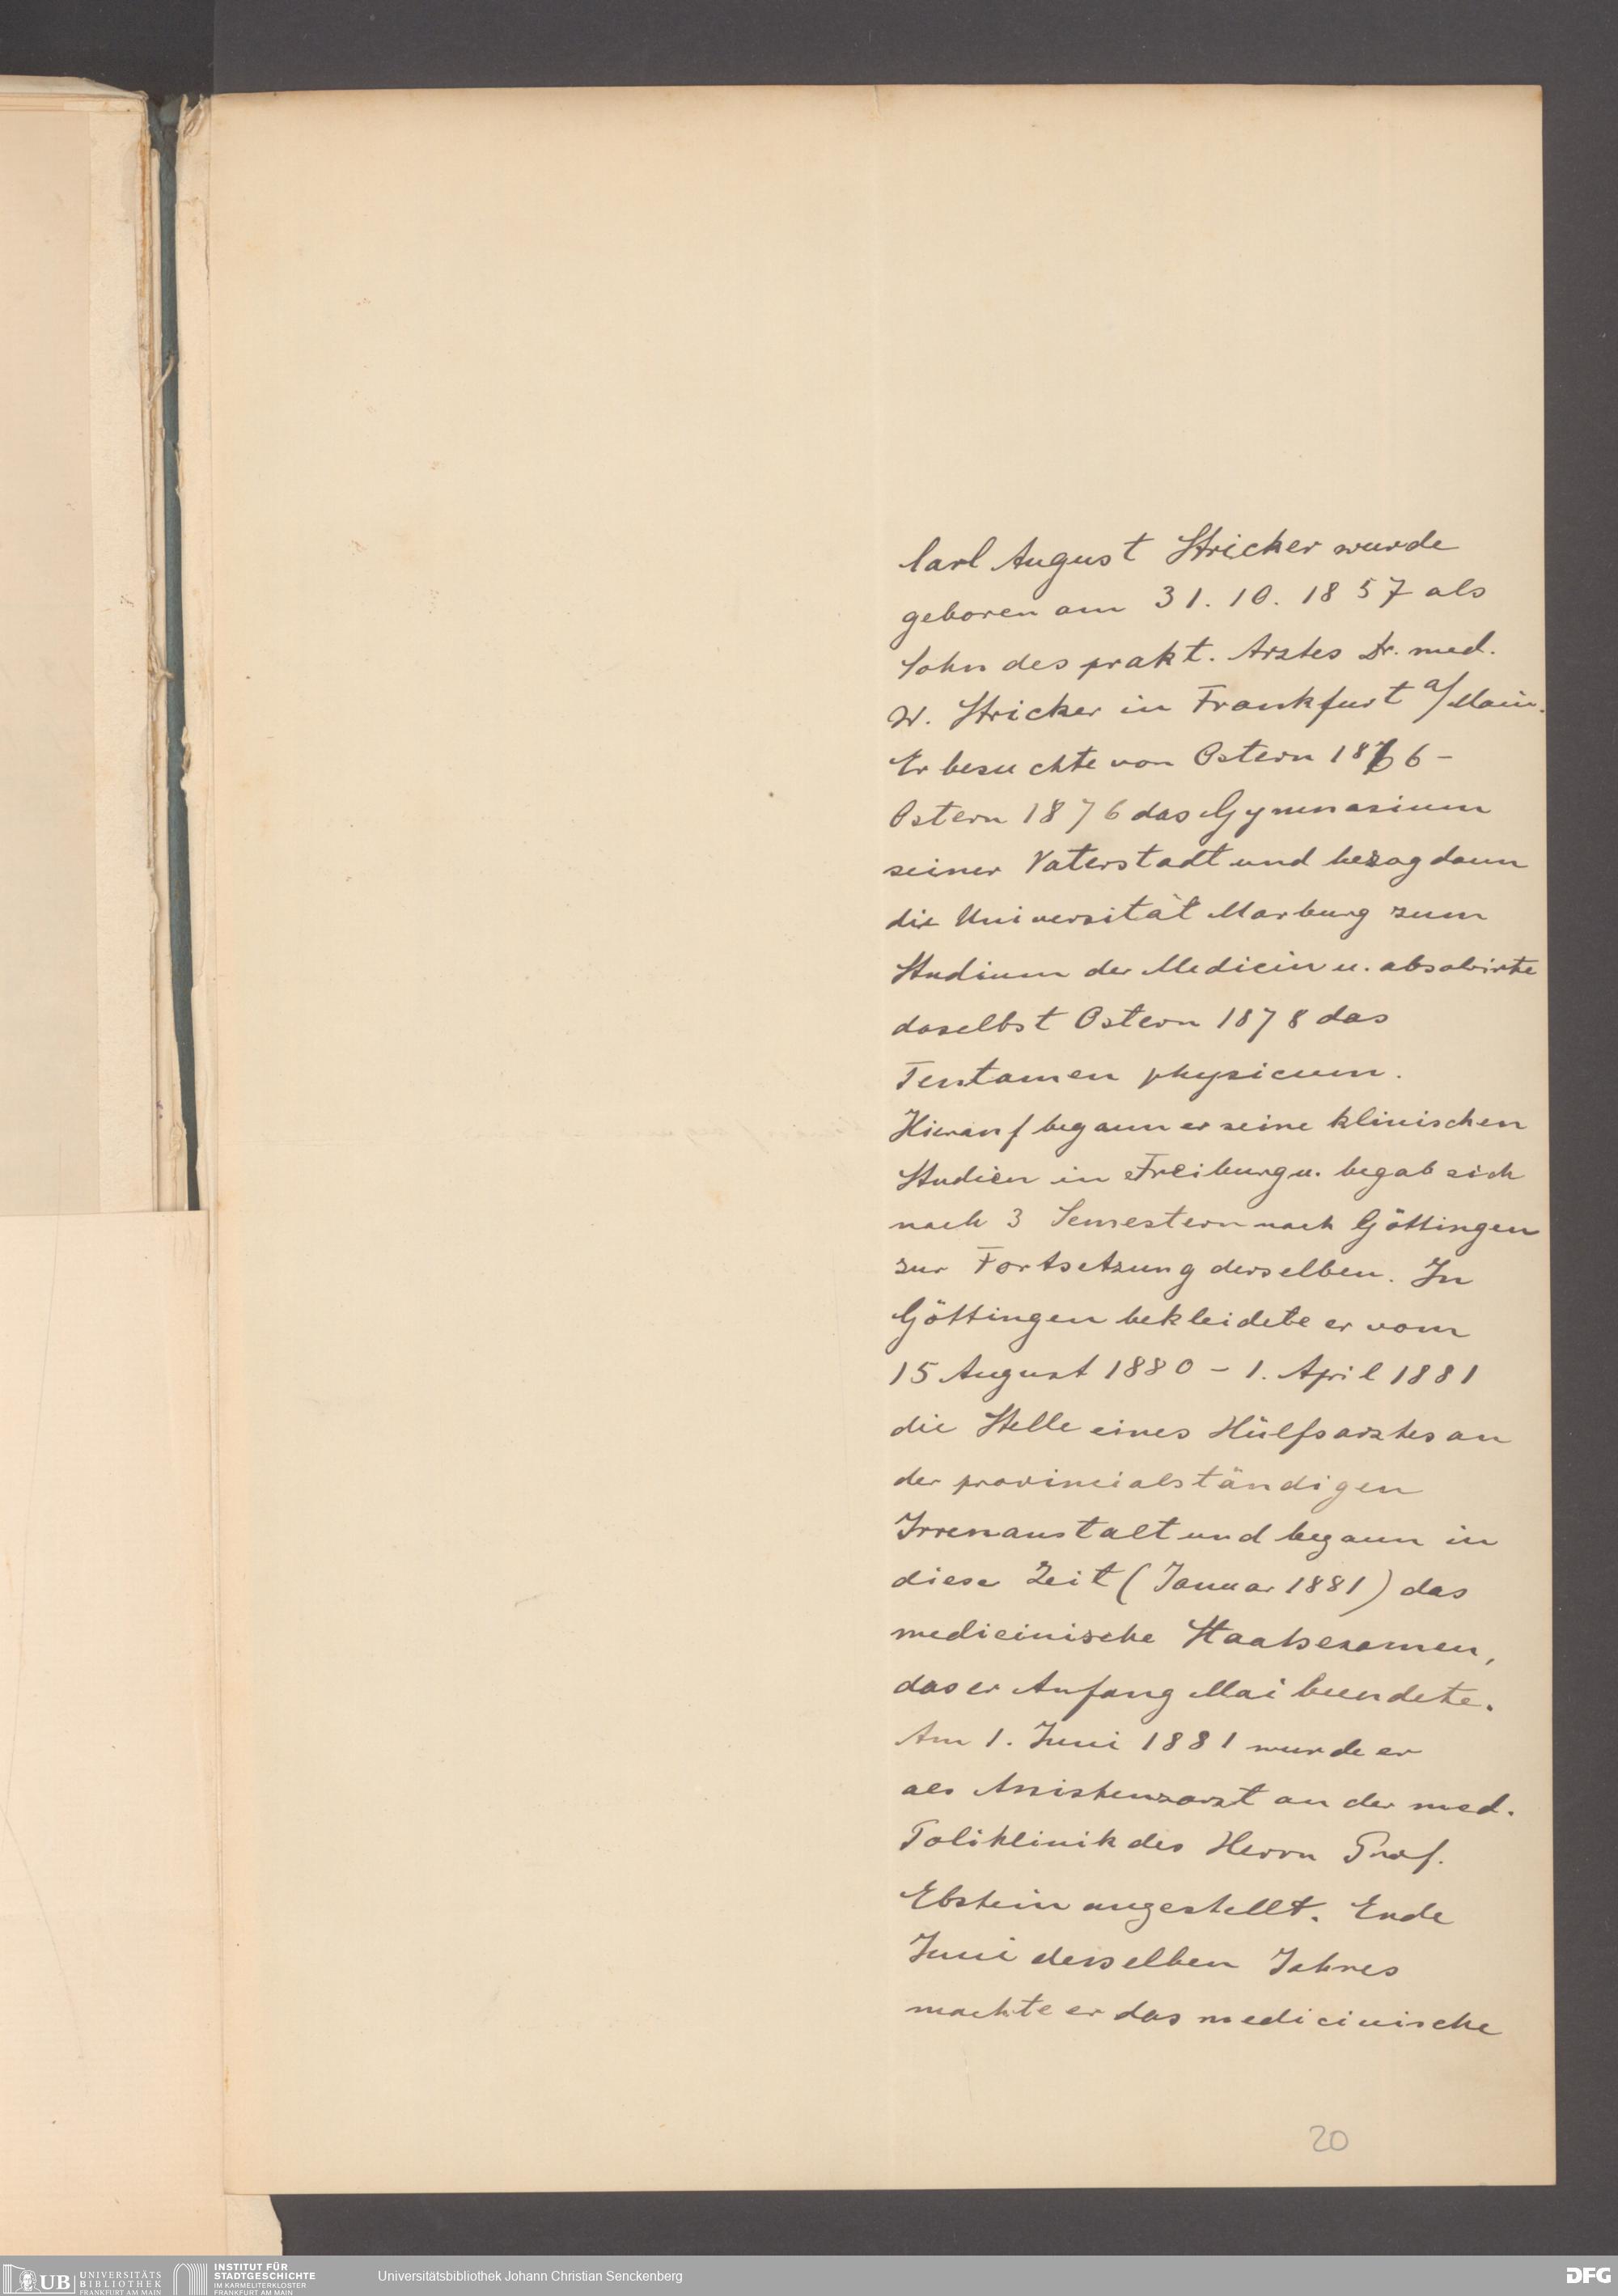 Carl August Stricker wurde
geboren am 31. 10. 1857 als
Sohn des prakt. Arztes Dr. med.
W. Stricker in Frankfurt a/Main.
Er besuchte von Ostern 1866 –
Ostern 1876 das Gymnasium
seiner Vaterstadt und bezog dann
die Universität Marburg zum
Studium der Medicin u. absolvirte
daselbst Ostern 1878 das
Tentamen physicum.
Hierauf begann er seine klinischen
Studien in Freiburg u. begab sich
nach 3 Semestern nach Göttingen
zur Fortsetzung derselben. In
Göttingen bekleidete er vom
15 August 1880 – 1. April 1881
die Stelle eines Hülfsarztes an
der provincialständigen
Irrenanstalt und begann in
diese Zeit (Januar 1881) das
medicinische Staatsexamen,
das er Anfang Mai beendete.
Am 1. Juni 1881 wurde er
als Assistenzarzt an der med.
Poliklinik des Herrn Prof.
Ebstein angestellt. Ende
Juni desselben Jahres
machte er das medicinische
20
UB UNIVERSITÄTS BIBLIOTHEK FRANKFURT AM MAIN
INSTITUT FÜR STADTGESCHICHTE IM KARMELITERKLOSTER FRANKFURT AM MAIN
Universitätsbibliothek Johann Christian Senckenberg
DFG